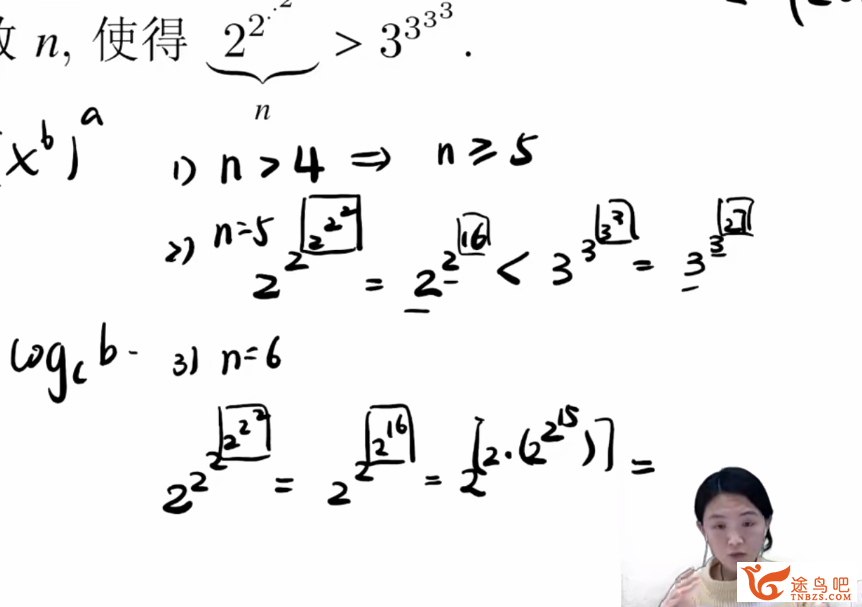 n, 使得 2^{2^{⋰^{2}}} > 3^{3^{3^{3}}}.
n
x^b)^a
1) n > 4 ⇒ n ≥ 5
2) n=5 2^{2^{2^{2^{2}}}} = 2^{2^{16}} < 3^{3^{3^{3}}} = 3^{3^{27}}
log_c b -
3) n=6
2^{2^{2^{2^{2^{2}}}}} = 2^{2^{2^{16}}} = 2^{[2·(2^{2^{15}})]} =
途鸟吧
TNBZS.COM